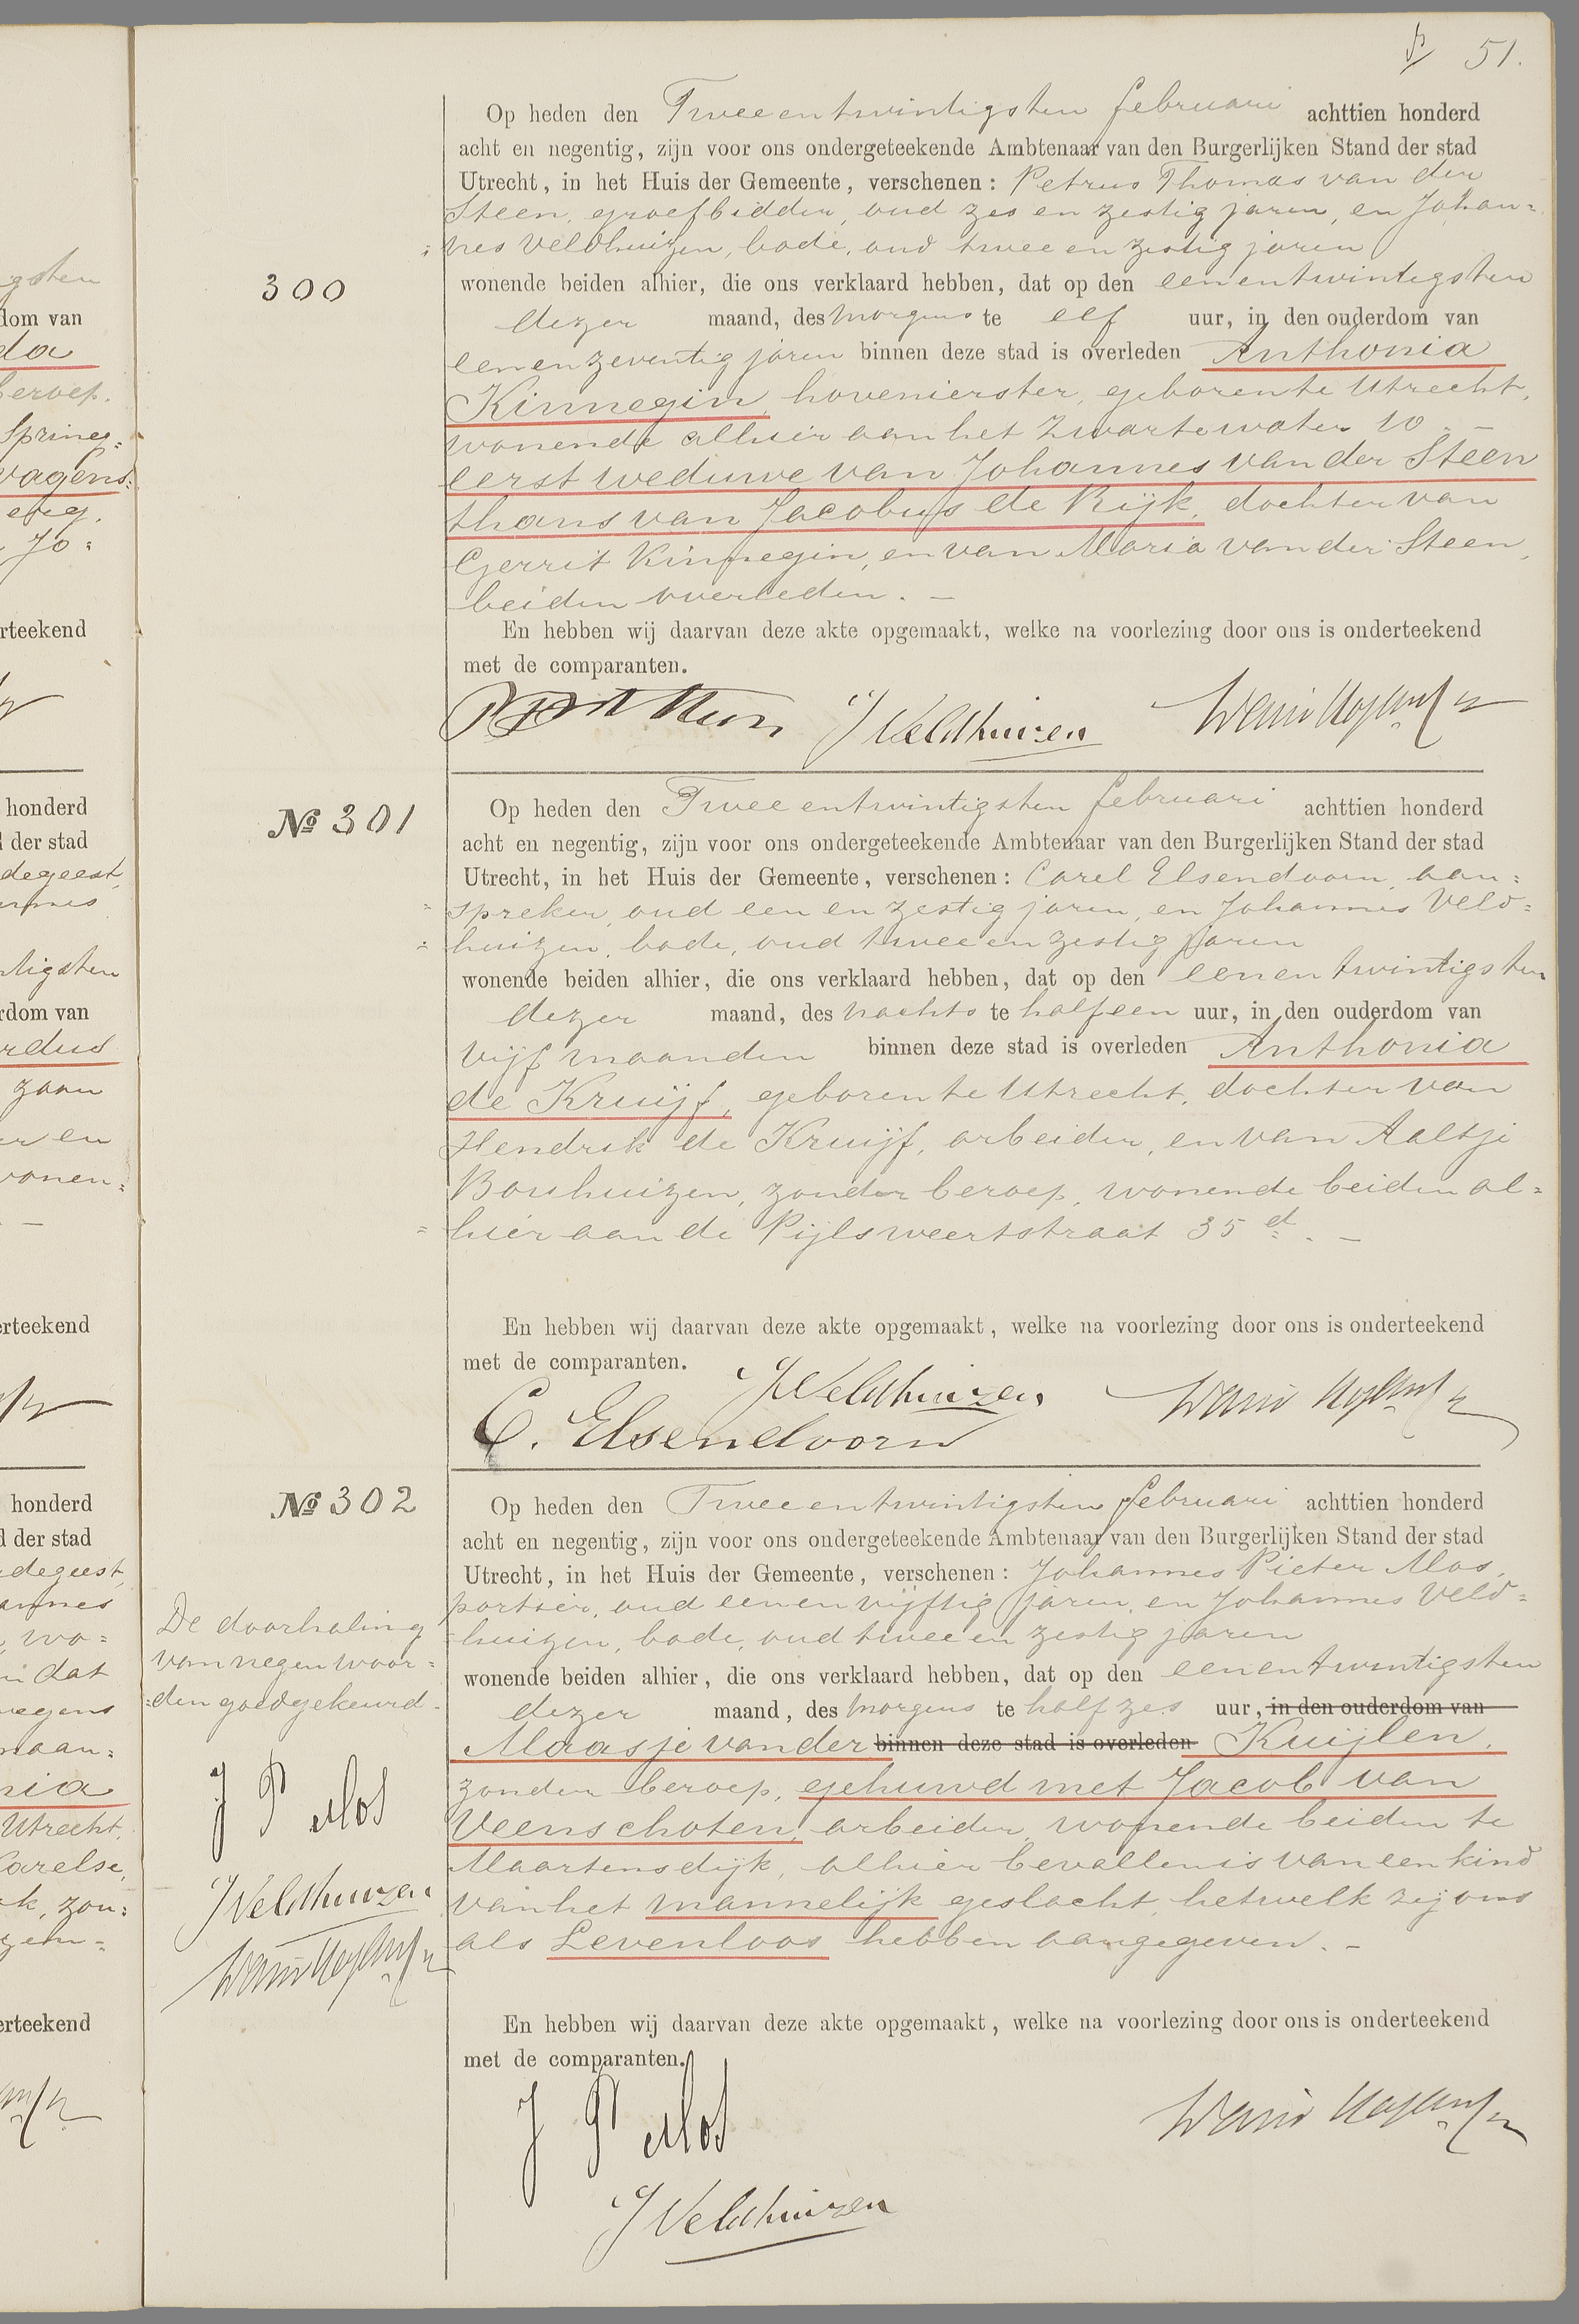 51.
300
Op heden den Tweeentwintigsten februari achttien honderd
acht en negentig, zijn voor ons ondergeteekende Ambtenaar van den Burgerlijken Stand der stad
Utrecht, in het Huis der Gemeente, verschenen: Petrus Thomas van der
Steen, groefbidder, oud zes en zestig jaren, en Johan=
=nes Veldhuizen, bode, oud twee en zestig jaren
wonende beiden alhier, die ons verklaard hebben, dat op den eenentwintigsten
dezer maand, des morgens te elf uur, in den ouderdom van
eenenzeventig jaren binnen deze stad is overleden Anthonia
Kinnegin, hovenierster, geboren te Utrecht,
wonende alhier aan het Zwarte water 10. –
eerst weduwe van Johannes van der Steen
thans van Jacobus de Rijk, dochter van
Gerrit Kinnegin, en van Maria van der Steen,
beiden overleden. –
En hebben wij daarvan deze akte opgemaakt, welke na voorlezing door ons is onderteekend
met de comparanten.
J Veldhuizen
No 301
Op heden den Twee entwintigsten februari achttien honderd
acht en negentig, zijn voor ons ondergeteekende Ambtenaar van den Burgerlijken Stand der stad
Utrecht, in het Huis der Gemeente, verschenen: Carel Elsendoorn, aan=
=spreker, oud een en zestig jaren, en Johannes Veld=
=huizen, bode, oud twee en zestig jaren
wonende beiden alhier, die ons verklaard hebben, dat op den eenen twintigsten
dezer maand, des nachts te half een uur, in den ouderdom van
vijf maanden binnen deze stad is overleden Anthonia
de Kruijf, geboren te Utrecht, dochter van
Hendrik de Kruijf, arbeider, en van Aaltje
Bouhuizen, zonder beroep, wonende beiden al=
=hier aan de Pijlsweertstraat 35 d. –
En hebben wij daarvan deze akte opgemaakt, welke na voorlezing door ons is onderteekend
met de comparanten.
J Veldhuizen
C. Elsendoorn
No 302
Op heden den Tweeentwintigsten februari achttien honderd
acht en negentig, zijn voor ons ondergeteekende Ambtenaar van den Burgerlijken Stand der stad
Utrecht, in het Huis der Gemeente, verschenen: Johannes Pieter Mos,
portier, oud eenen vijftig jaren, en Johannes Veld=
huizen, bode, oud twee en zestig jaren
wonende beiden alhier, die ons verklaard hebben, dat op den eenentwintigsten
dezer maand, des morgens te half zes uur, in den ouderdom van
Maasje van der binnen deze stad is overleden Kuijlen,
zonder beroep, gehuwd met Jacob van
Veenschoten, arbeider, wonende beiden te
Maartensdijk, alhier bevallen is van een kind
van het mannelijk geslacht, hetwelk zij ons
als Levenloos hebben aangegeven. –
De doorhaling
van negen woor=
=den goedgekeurd.
J P Mos
J Veldhuizen
En hebben wij daarvan deze akte opgemaakt, welke na voorlezing door ons is onderteekend
met de comparanten.
J P Mos
J Veldhuizen